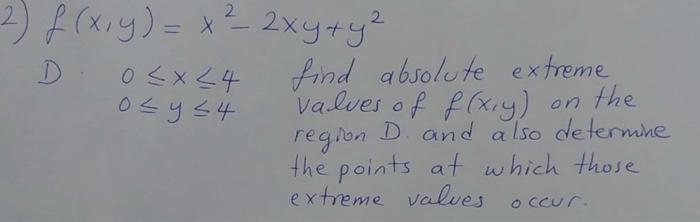 2) f(x,y) = x² - 2xy + y²
D 0 ≤ x ≤ 4 find absolute extreme
0 ≤ y ≤ 4 values of f(x,y) on the
region D. and also determine
the points at which those
extreme values occur.